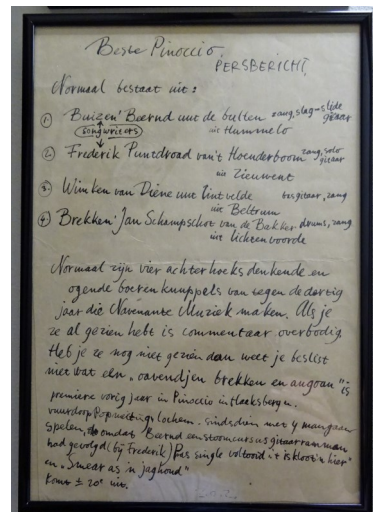 Beste Pinoccio,
PERSBERICHT,
Normaal bestaat uit:
1. Buizen' Beernd uut de bulten zang, slag- slide gitaar
songwriters uit Hummelo
2. Frederik Puntdroad van't Hoenderboom zang, solo gitaar
uit Zieuwent
3. Wimken van Diene uut Tintvelde basgitaar, zang
uit Beltrum
4. Brekken' Jan Schampschot van de Bakker drums, zang
uit Lichtenvoorde
Normaal zijn vier achterhoeks denkende en
ogende boerenknuppels van tegen de dertig
jaar die Navenante Muziek maken. Als je
ze al gezien hebt is commentaar overbodig.
Heb je ze nog niet gezien dan weet je beslist
niet wat een "oavendjen brekken en angoan" is
premiere vorig jaar in Pinoccio in Haaksbergen.
vuurdorp Popmeeting Lochem. sindsdien met
spelen, omdat Beernd een stoomcursus gitaarrammen
had gevolgd (bij Frederik) Pas single voltooid "t is kloot'n hier"
en "Smear as'n jaghond"
Komt ± 20e uit.